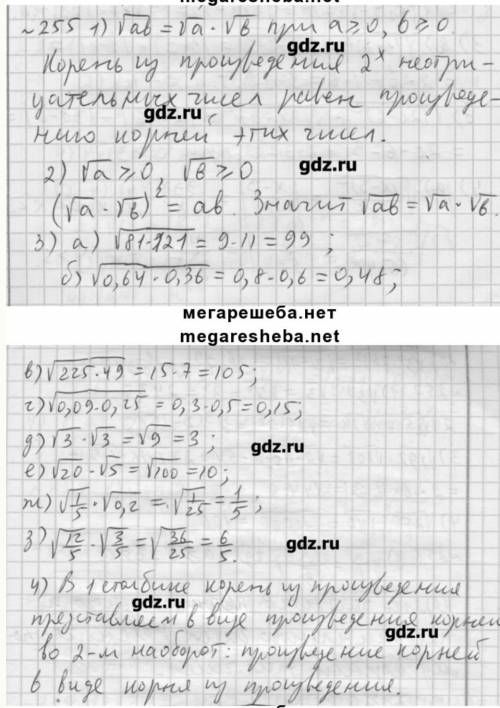 megaresheba.net
№255 1) √ab = √a · √b при a ≥ 0, b ≥ 0.
gdz.ru
Корень из произведения 2х неотри-
цательных чисел равен произведе-
gdz.ru
нию корней этих чисел.
2) √a ≥ 0, √b ≥ 0
gdz.ru
(√a · √b)² = ab. Значит √ab = √a · √b.
3) а) √81·121 = 9·11 = 99;
б) √0,64·0,36 = 0,8·0,6 = 0,48;
мегарешеба.нет
megaresheba.net
в) √225·49 = 15·7 = 105;
г) √0,09·0,25 = 0,3·0,5 = 0,15;
д) √3·√3 = √9 = 3;
gdz.ru
е) √20·√5 = √100 = 10;
ж) √1/5 · √0,2 = √1/25 = 1/5;
з) √12/5 · √3/5 = √36/25 = 6/5.
gdz.ru
4) В 1 столбике корень из произведения
gdz.ru
представляем в виде произведения корней
gdz.ru
во 2-м наоборот: произведение корней
в виде корня из произведения.
gdz.ru